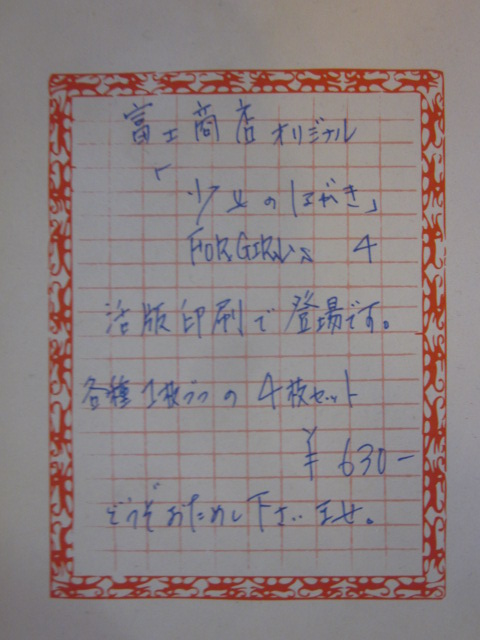 富士商店 オリジナル
「少女のはがき」
FOR GIRLS 4
活版印刷で登場です。
各種1枚づつの4枚セット
¥630-
どうぞおためし下さいませ。